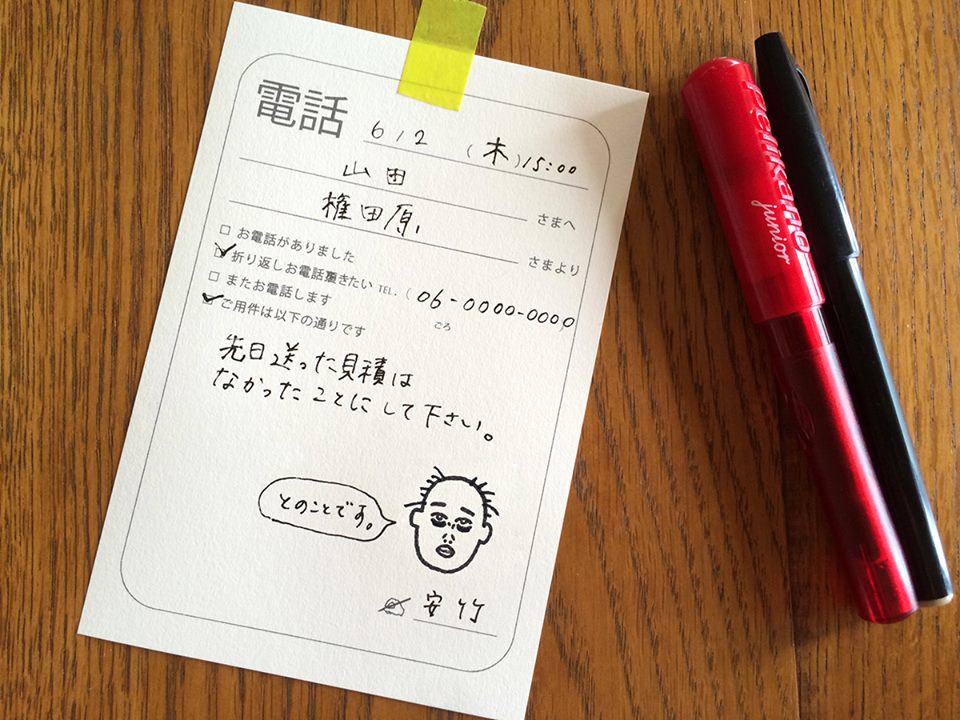 電話
6/2 (木) 15:00
山田 さまへ
権田原 さまより
□ お電話がありました
☑ 折り返しお電話頂きたい TEL. ( 06-0000-0000 )
□ またお電話します ごろ
☑ ご用件は以下の通りです
先日送った見積は
なかったことにして下さい。
とのことです。
安竹
Pelikano
junior